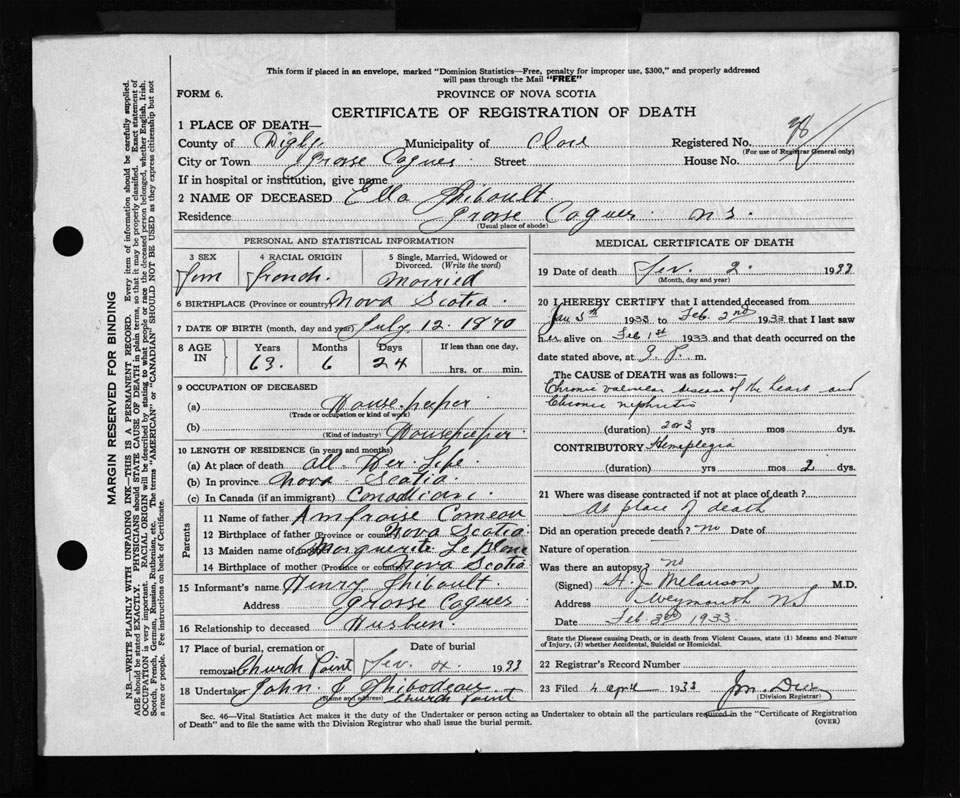 This form if placed in an envelope, marked "Dominion Statistics—Free, penalty for improper use, $300," and properly addressed
will pass through the Mail "FREE"
FORM 6.
PROVINCE OF NOVA SCOTIA
CERTIFICATE OF REGISTRATION OF DEATH
1 PLACE OF DEATH—
County of Digby Municipality of Clare Registered No.
(For use of Registrar General only)
City or Town Grosse Coques Street House No.
If in hospital or institution, give name
2 NAME OF DECEASED Ella Thibault
Residence Grosse Coques N S.
(Usual place of abode)
PERSONAL AND STATISTICAL INFORMATION
3 SEX Fem
4 RACIAL ORIGIN french
5 Single, Married, Widowed or Divorced. (Write the word) Married
6 BIRTHPLACE (Province or country) Nova Scotia
7 DATE OF BIRTH (month, day and year) July 12. 1870
8 AGE IN Years 63. Months 6 Days 24 If less than one day. hrs. or min.
9 OCCUPATION OF DECEASED
(a) House-keeper
(Trade or occupation or kind of work)
(b) Housekeeper
(Kind of industry)
10 LENGTH OF RESIDENCE (in years and months)
(a) At place of death all Her Life
(b) In province Nova Scotia
(c) In Canada (if an immigrant) Canadian
Parents
11 Name of father Ambroise Comeau
12 Birthplace of father (Province or country) Nova Scotia
13 Maiden name of mother Marguerite LeBlanc
14 Birthplace of mother (Province or country) Nova Scotia
15 Informant's name Henry Thibault
Address Grosse Coques
16 Relationship to deceased Husben
17 Place of burial, cremation or removal Church Point
Date of burial Fev. 4. 1933
18 Undertaker John C Thibodeau
(Name and address) Church Point
MEDICAL CERTIFICATE OF DEATH
19 Date of death Fev. 2. 1933
(Month, day and year)
20 I HEREBY CERTIFY that I attended deceased from
Jan 5th 1933 to Feb. 2nd 1933 that I last saw
her alive on Feb 1st 1933 and that death occurred on the
date stated above, at 3. P. m.
The CAUSE OF DEATH was as follows:
Chronic valvular disease of the heart and
Chronic nephritis
(duration) 2 or 3 yrs mos dys.
CONTRIBUTORY Hemiplegia
(duration) yrs mos 2 dys.
21 Where was disease contracted if not at place of death?
At place of death
Did an operation precede death? no Date of
Nature of operation
Was there an autopsy? no
(Signed) H. J. Melanson M.D.
Address Weymouth N S
Date Feb 3rd 1933.
State the Disease causing Death, or in death from Violent Causes, state (1) Means and Nature
of Injury, (2) whether Accidental, Suicidal or Homicidal.
22 Registrar's Record Number
23 Filed 4 April 1933
(Division Registrar)
Sec. 46—Vital Statistics Act makes it the duty of the Undertaker or person acting as Undertaker to obtain all the particulars required in the "Certificate of Registration
of Death" and to file the same with the Division Registrar who shall issue the burial permit.
(OVER)
MARGIN RESERVED FOR BINDING
N.B.—WRITE PLAINLY WITH UNFADING INK—THIS IS A PERMANENT RECORD. Every item of information should be carefully supplied.
AGE should be stated EXACTLY. PHYSICIANS should STATE CAUSE OF DEATH in plain terms, so that it may be properly classified. Exact statement of
OCCUPATION is very important. RACIAL ORIGIN will be described by stating to what people or race the deceased person belonged, whether English, Irish,
Scotch, French, German, Russian, Ruthenian, etc. The terms "AMERICAN" or "CANADIAN" SHOULD NOT BE USED as they express citizenship but not
a race or people. Fee instructions on back of Certificate.